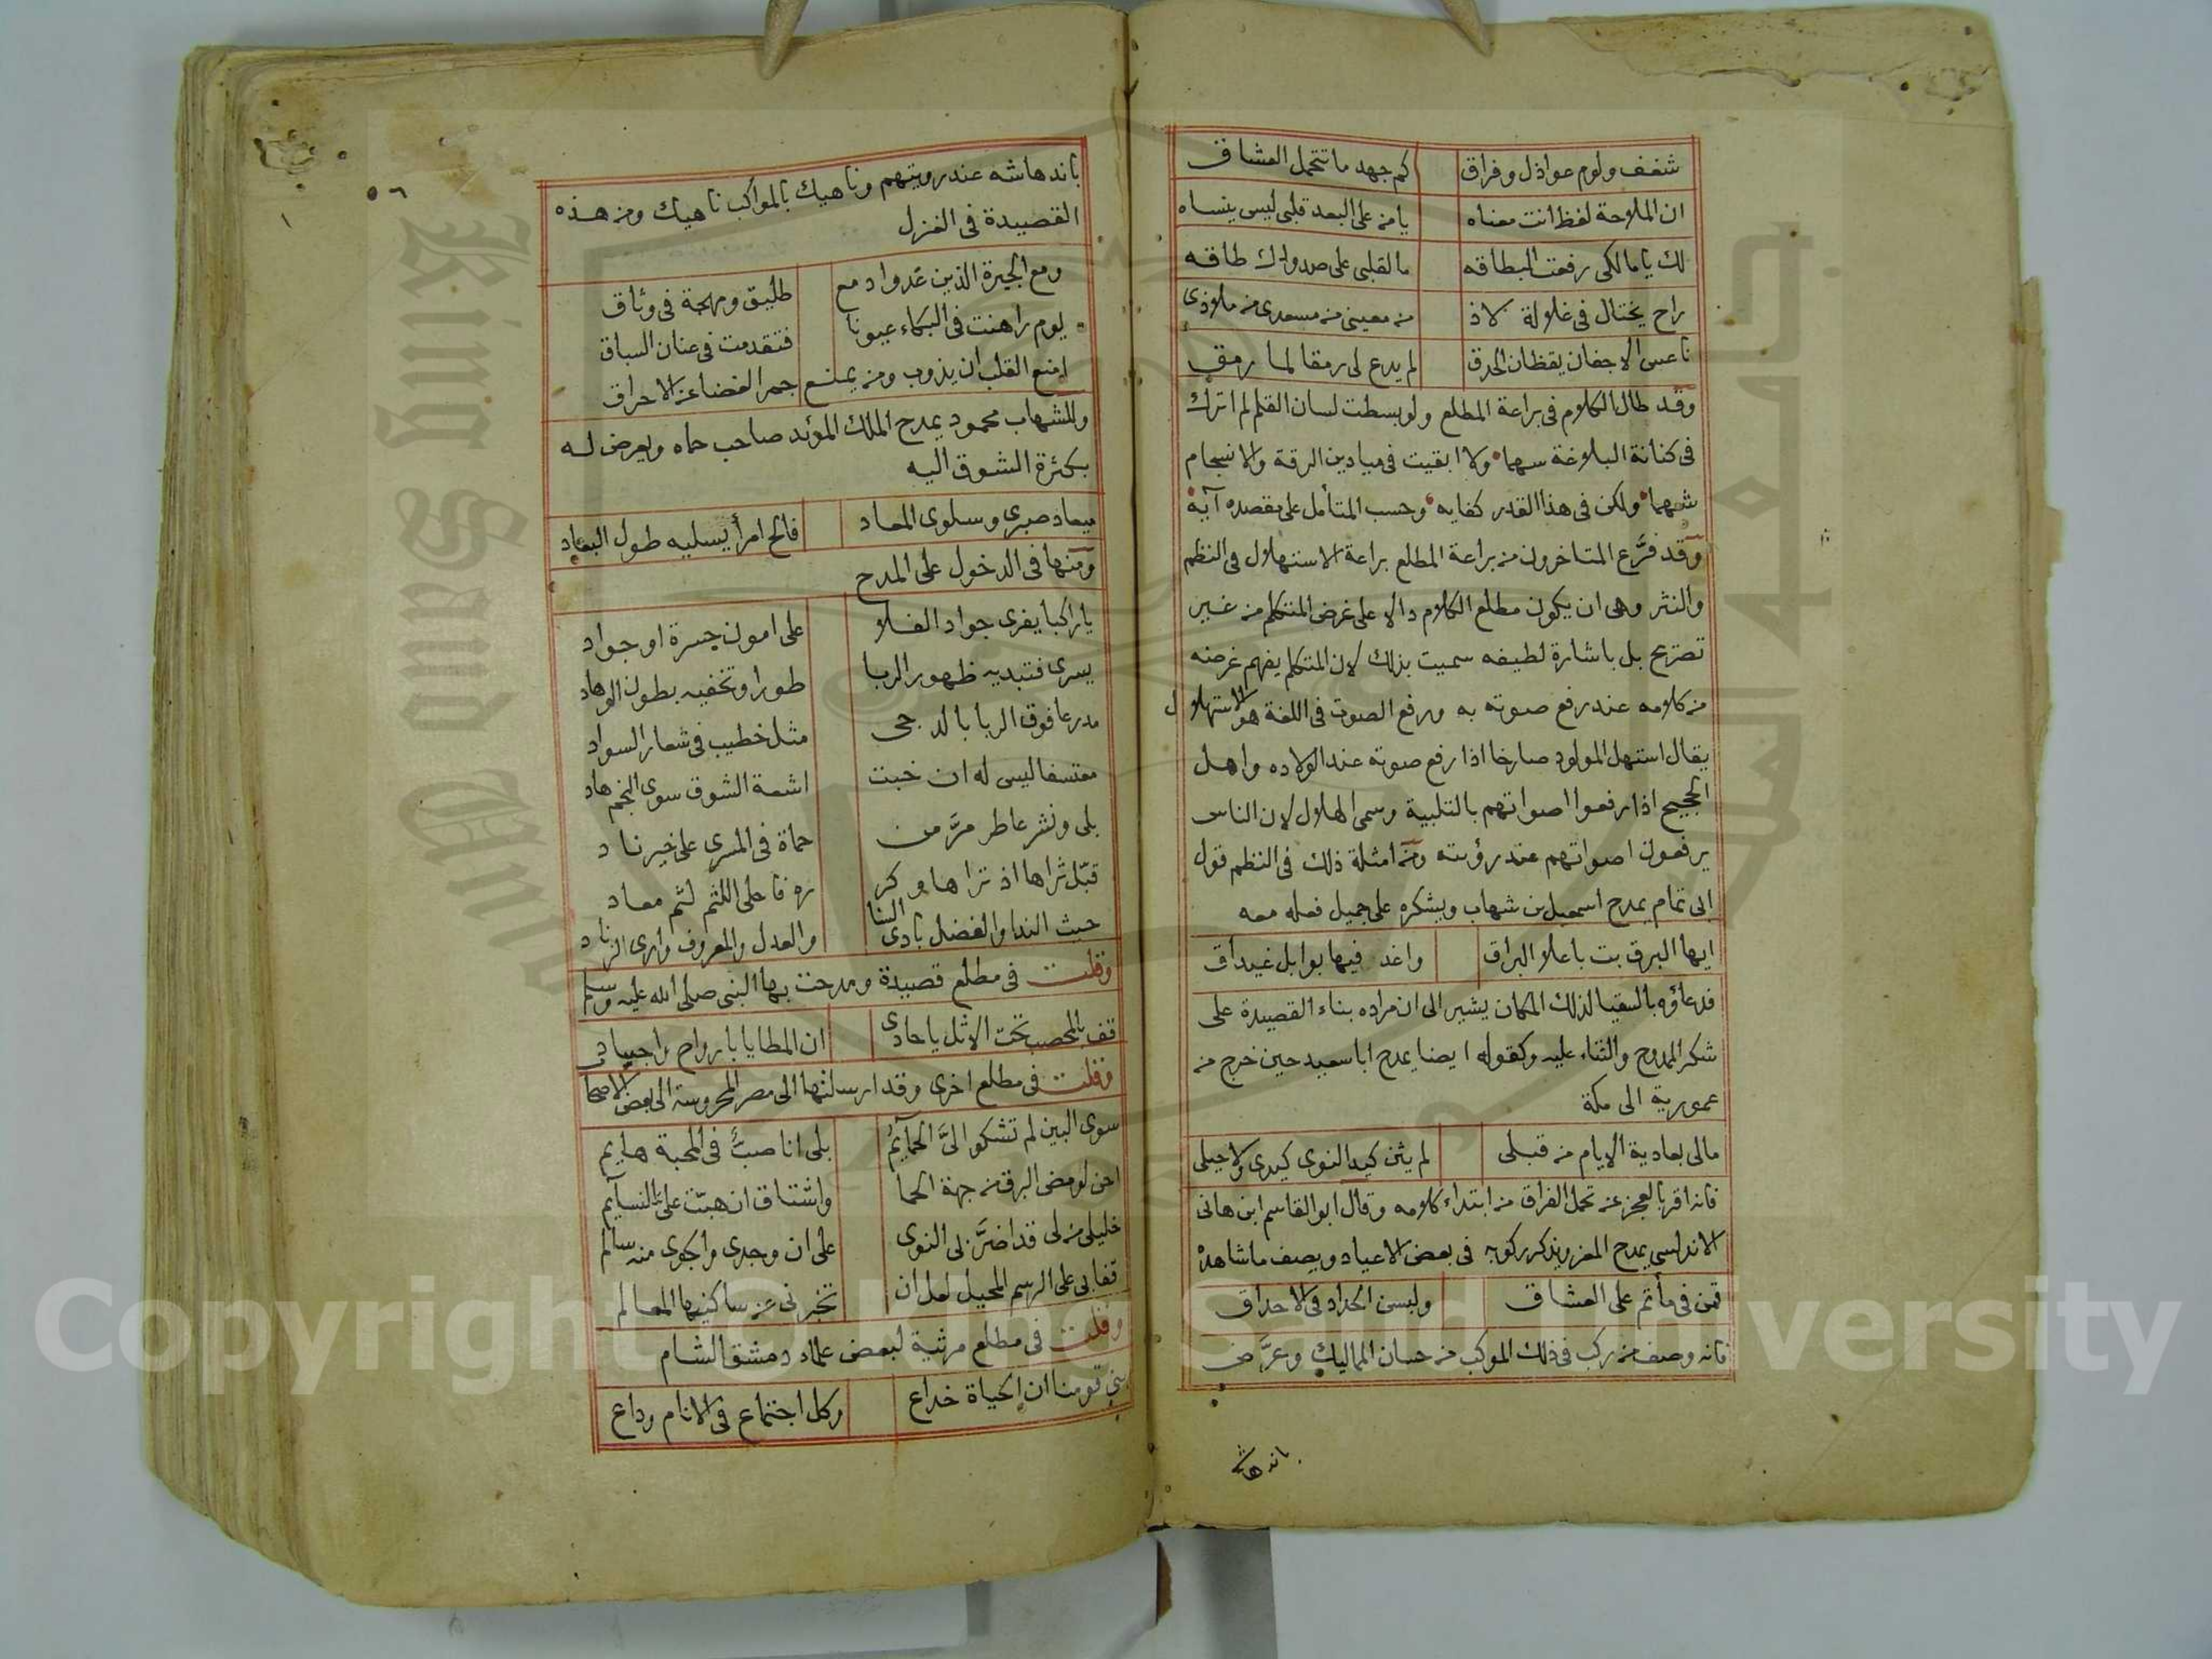 شغف ولوم عواذل وفراق كم جهد ما تتحمل العشاق
ان الملاحة لفظ انت معناه يا من على البعد قلبي ليس ينساه
لك يا مالكي رفعت البطاقه ما لقلبي على صدودك طاقه
راح يختال في غلالة لاذ من معيني من مسعدي من ملاذي
ناعس الاجفان يقظان الحدق لم يدع لي رمقا لما رمق
وقد طال الكلام في براعة المطلع ولو بسطت لسان القلم لم اترك
في كنانة البلاغة سهما ولا ابقيت في ميادين الرقة والانسجام
شهما ولكن في هذا القدر كفايه وحسب المتأمل على مقصده آية
وقد فرَّع المتاخرون من براعة المطلع براعة الاستهلال في النظم
والنثر وهي ان يكون مطلع الكلام دالا على غرض المتكلم من غير
تصريح بل باشارة لطيفه سميت بذلك لان المتكلم يفهم غرضه
من كلامه عند رفع صوته به ورفع الصوت في اللغة هو الاستهلال
يقال استهل المولود صارخا اذا رفع صوته عند الولاده واهل
الحجيج اذا رفعوا اصواتهم بالتلبية وسمى الهلال لان الناس
يرفعون اصواتهم عند رؤيته ومن امثلة ذلك في النظم قول
ابي تمام يمدح اسمعيل بن شهاب ويشكره على جميل فعله معه
ايها البرق بت باعلا البراق واغد فيها بوابل غيداق
فدعاؤه بالسقيا لذلك المكان يشير الى ان مراده بناء القصيدة على
شكر الممدوح والثناء عليه وكقوله ايضا يمدح ابا سعيد حين خرج من
عمورية الى مكة
مالى بعادية الايام من قبلي لم يثن كيد النوى كيدي ولا حيلي
فانه اقر بالعجز عن تحمل الفراق من ابتداء كلامه وقال ابو القاسم ابن هاني
الاندلسي يمدح المعز ويذكر ركوبه في بعض الاعياد ويصف ما شاهده
قمن في مأتم على العشاق ولبسن الحداد في الاحداق
فانه وصف من ركب في ذلك الموكب من حسان المماليك وعرَّض
باندهاشه
٥٦
باندهاشه عند رويتهم وناهيك بالمواكب ناهيك ومن هذه
القصيدة في الغزل
ومع الجيرة الذين غدوا دمع طليق ومهجة في وثاق
يوم راهنت في البكاء عيونا فتقدمت في عنان السباق
امنع القلب ان يذوب ومن يمنع جمر الغضا عن الاحراق
وللشهاب محمود يمدح الملك المؤيد صاحب حماه ويعرض له
بكثرة الشوق اليه
ميعاد صبري وسلوى المعاد فالح امرأ يسليه طول البعاد
ومنها في الدخول على المدح
يا راكبا يفرى جواد الفلا على امون جسرة او جواد
يسرى فتبديه ظهور الربا طورا وتخفيه بطون الوهاد
مدرعا فوق الربا بالدجى مثل خطيب في شعار السواد
معتسفا ليس له ان خبت اشعة الشوق سوى النجم هاد
بلى ونشر عاطر مرَّ من حماة في المسرى على خير ناد
قبّل ثراها اذ تراها وكر رها فا على اللثم لثم معاد
حيث الندا والفضل بادى السنا والعدل والمعروف وارى الزناد
وقلت في مطلع قصيدة ومدحت بها النبي صلى الله عليه وسلم
قف بالمحصب تحت الاثل يا حادى ان المطايا بارواح واجساد
وقلت في مطلع اخرى وقد ارسلتها الى مصر المحروسة الى بعض الاصحاب
سوى البين لم تشكوا الىَّ الحمايمُ بلى انا صبٌّ في المحبة هايم
احن لومض البرق من جهة الحما واشتاق ان هبّت علىَّ النسايم
خليلي من لى قد اضرَّ بى النوى على ان وجدى والجوى منه سالم
قفا بى على الرسم المحيل لعل ان تخبرنى عن ساكنيها المعالم
وقلت في مطلع مرثية لبعض علماء دمشق الشام
بني قومنا ان الحياة خداع وكل اجتماع في الانام وداع
King Saud University
Copyright © King Saud University